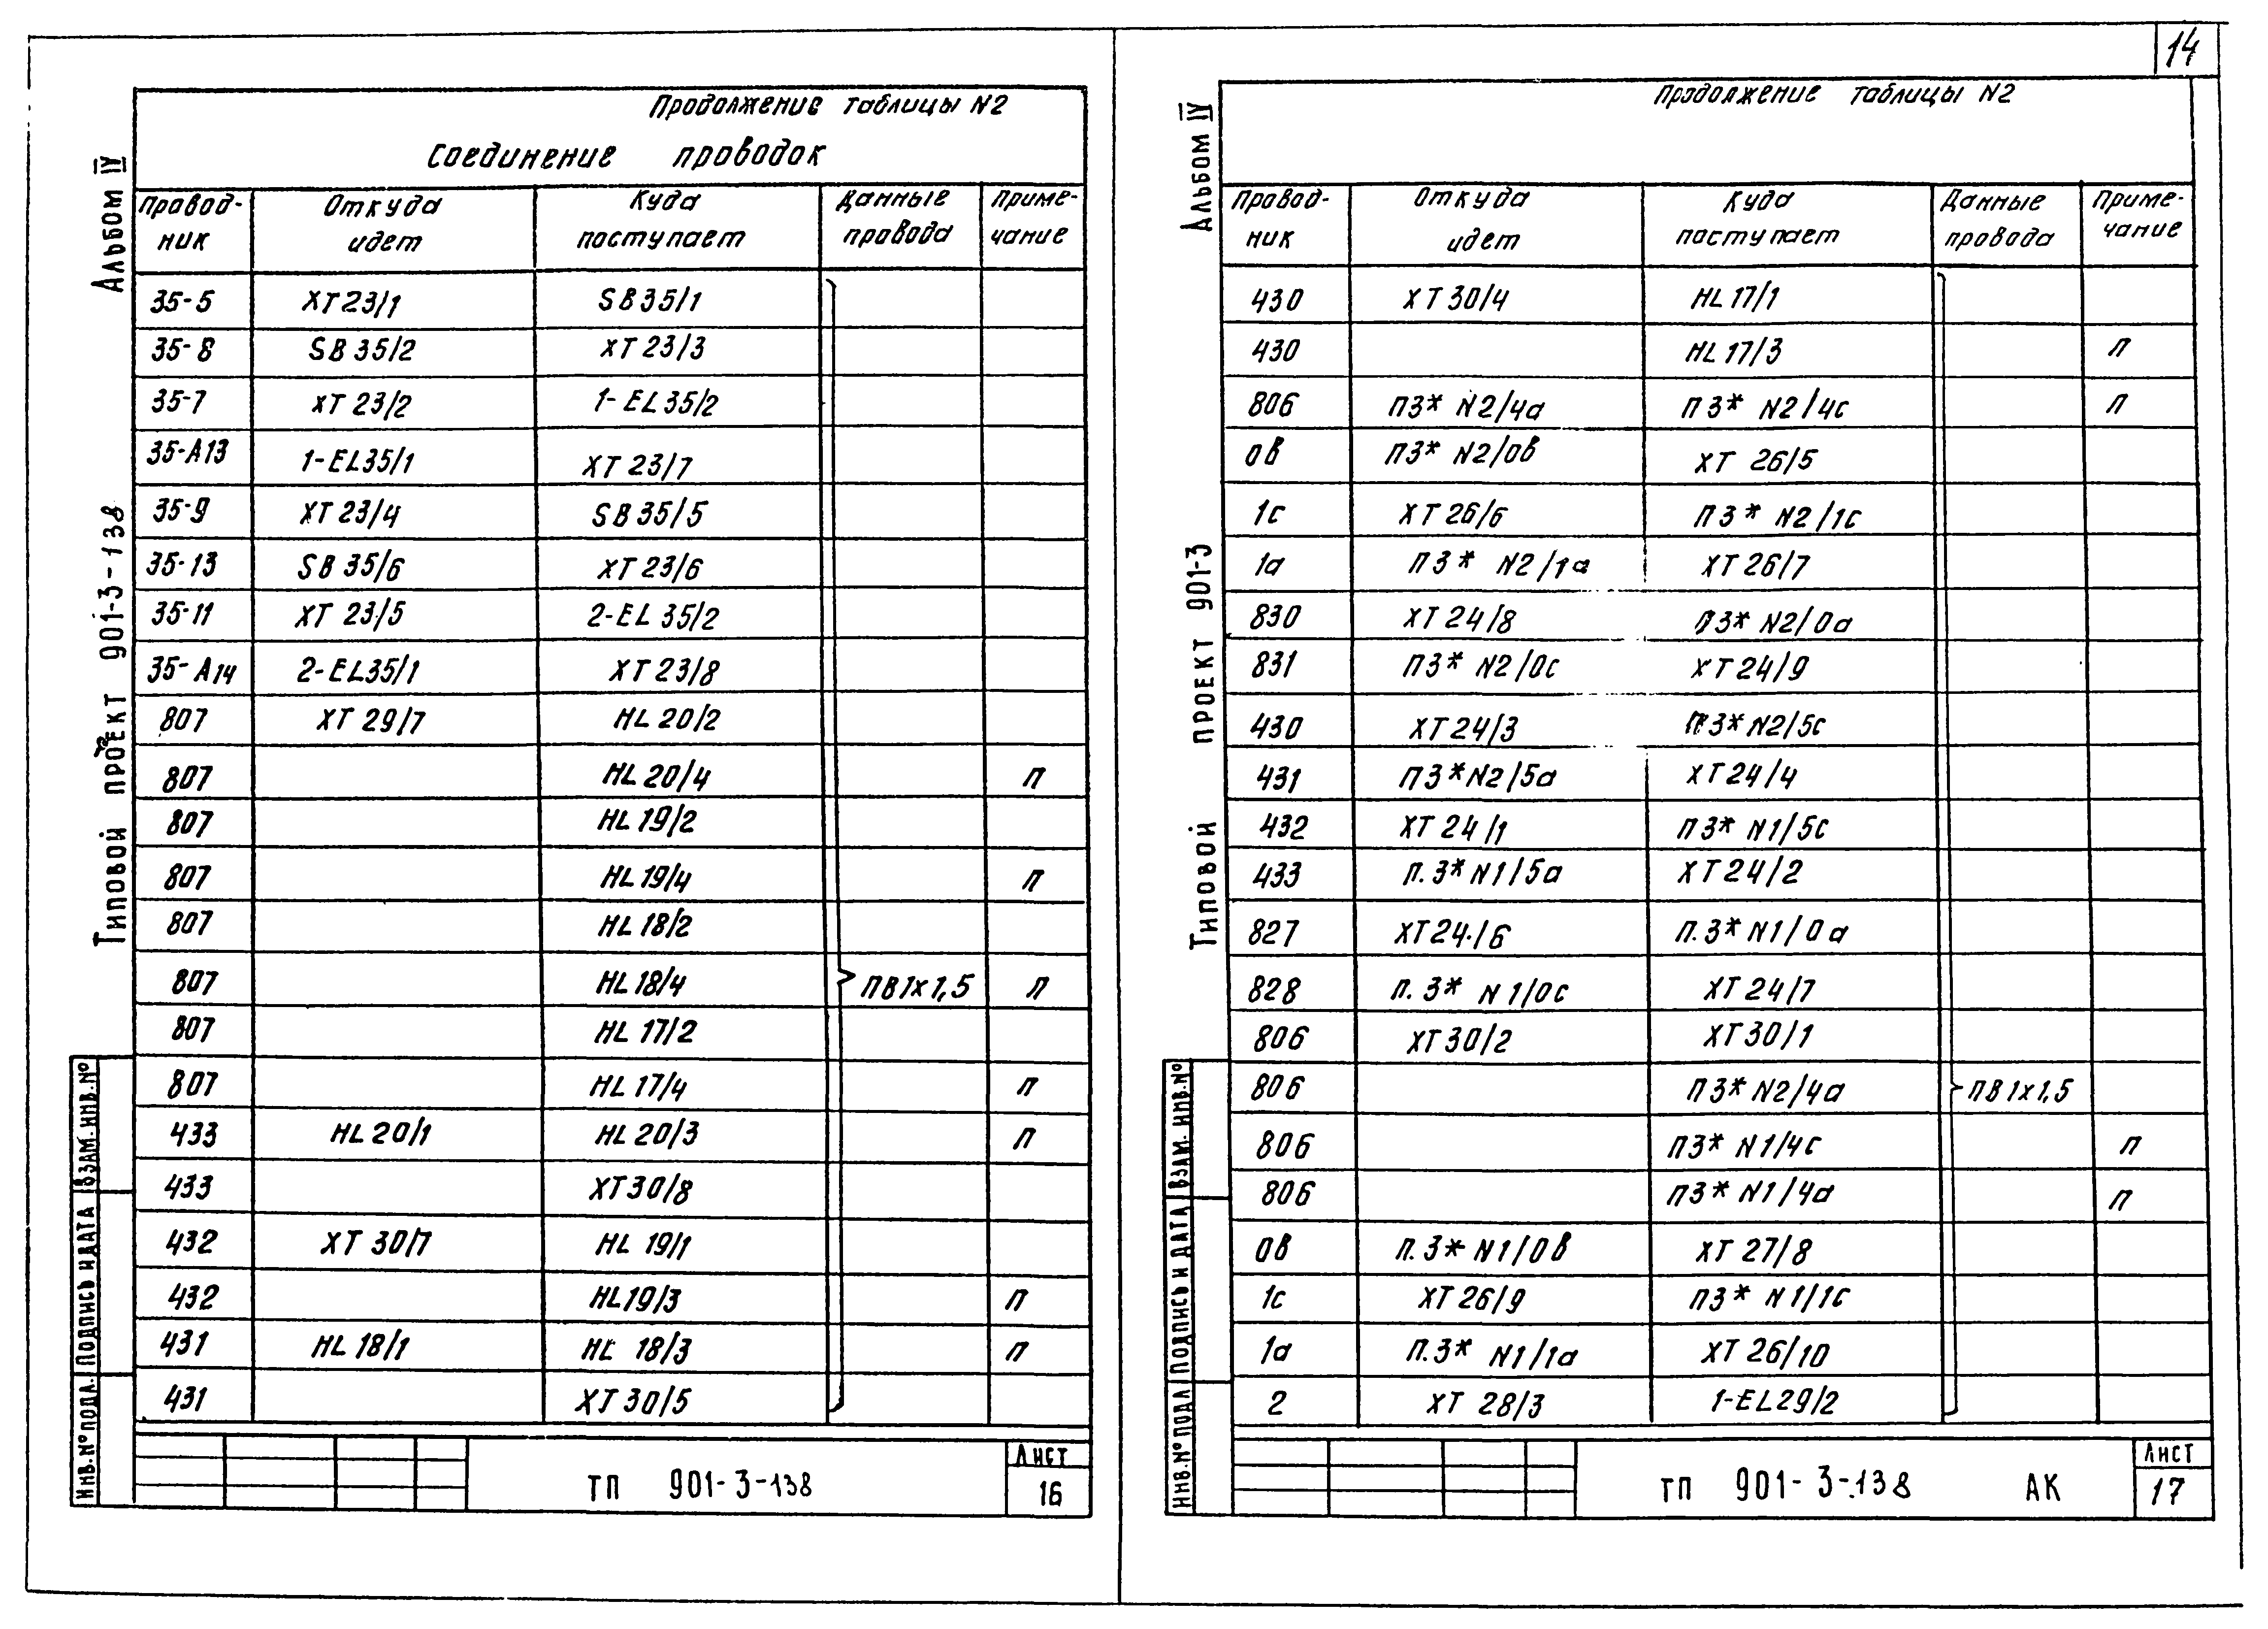 14
Альбом IV
Типовой проект 901-3-138
Продолжение таблицы N2
Соединение проводок
Провод-ник Откуда идет Куда поступает Данные провода Приме-чание
35-5 XT23/1 SB35/1
35-8 SB35/2 XT23/3
35-7 XT23/2 1-EL35/2
35-A13 1-EL35/1 XT23/7
35-9 XT23/4 SB35/5
35-13 SB35/6 XT23/6
35-11 XT23/5 2-EL35/2
35-A14 2-EL35/1 XT23/8
807 XT29/7 HL20/2
807 HL20/4 п
807 HL19/2
807 HL19/4 п
807 HL18/2
807 HL18/4 ПВ1х1,5 п
807 HL17/2
807 HL17/4 п
433 HL20/1 HL20/3 п
433 XT30/8
432 XT30/7 HL19/1
432 HL19/3 п
431 HL18/1 HL18/3 п
431 XT30/5
Инв.№подл. Подпись и дата Взам.инв.№
ТП 901-3-138
Лист
16
Альбом IV
Типовой проект 901-3
Продолжение таблицы N2
Провод-ник Откуда идет Куда поступает Данные провода Приме-чание
430 XT30/4 HL17/1
430 HL17/3 п
806 ПЗ* N2/4а ПЗ* N2/4с п
0в ПЗ* N2/0в XT26/5
1с XT26/6 ПЗ* N2/1с
1а ПЗ* N2/1а XT26/7
830 XT24/8 ПЗ* N2/0а
831 ПЗ* N2/0с XT24/9
430 XT24/3 ПЗ* N2/5с
431 ПЗ* N2/5а XT24/4
432 XT24/1 ПЗ* N1/5с
433 П.З* N1/5а XT24/2
827 XT24/6 П.З* N1/0а
828 П.З* N1/0с XT24/7
806 XT30/2 XT30/1
806 ПЗ* N2/4а ПВ1х1,5
806 ПЗ* N1/4с п
806 ПЗ* N1/4а п
0в П.З* N1/0в XT27/8
1с XT26/9 ПЗ* N1/1с
1а П.З* N1/1а XT26/10
2 XT28/3 1-EL29/2
Инв.№подл Подпись и дата Взам.инв.№
ТП 901-3-138 АК
Лист
17